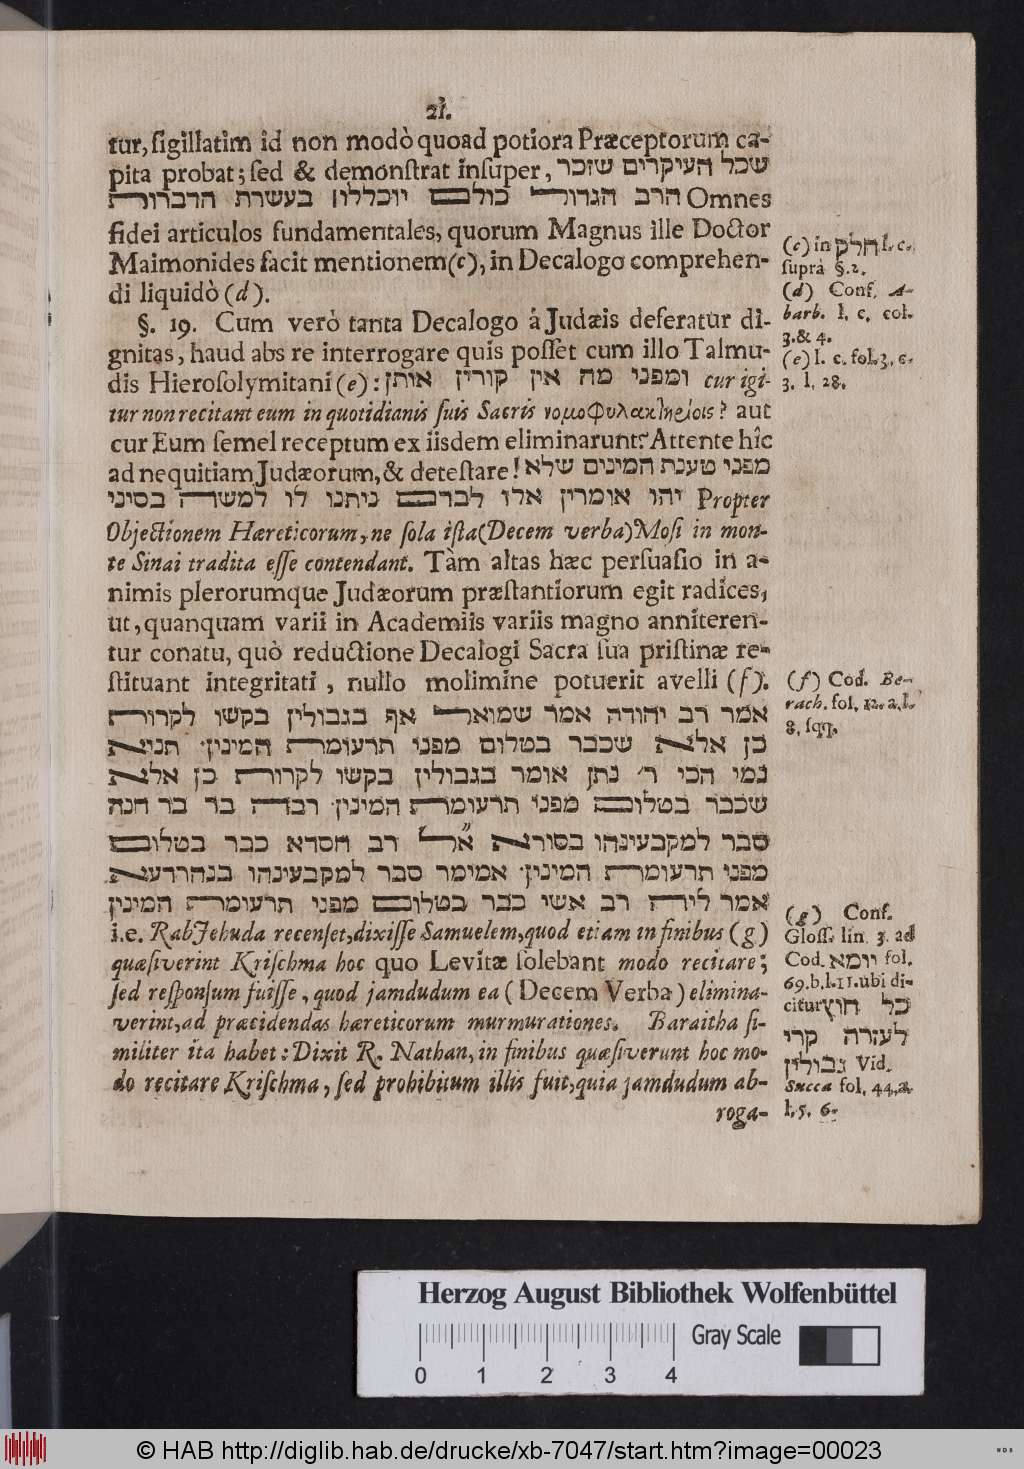 21.
tur, sigillatim id non modò quoad potiora Præceptorum ca-
pita probat; sed & demonstrat insuper, שכל העיקרים שזכר
הרב הגדול כולם יוכללו בעשרת הדברות Omnes
fidei articulos fundamentales, quorum Magnus ille Doctor
Maimonides facit mentionem (c), in Decalogo comprehen-
di liquidò (d).
§. 19. Cum verò tanta Decalogo á Judæis deferatur di-
gnitas, haud abs re interrogare quis posset cum illo Talmu-
dis Hierosolymitani (e): ומפני מה אין קורין אותן cur igi-
tur non recitant eum in quotidianis suis Sacris νομοφυλακτηρίοις? aut
cur Eum semel receptum ex iisdem eliminarunt? Attente hîc
ad nequitiam Judæorum, & detestare! מפני טענת המינים שלא
יהו אומרין אלו לבדם ניתנו לו למשה בסיני Propter
Objectionem Hæreticorum, ne sola ista (Decem verba) Mosi in mon-
te Sinai tradita esse contendant. Tàm altas hæc persuasio in a-
nimis plerorumque Judæorum præstantiorum egit radices,
ut, quanquam varii in Academiis variis magno anniteren-
tur conatu, quò reductione Decalogi Sacra sua pristinæ re-
stituant integritati, nullo molimine potuerit avelli (f).
אמר רב יהודה אמר שמואל אף בגבולין בקשו לקרות
כן אלא שכבר בטלום מפני תרעומת המינין. תניא
נמי הכי ר׳ נתן אומר בגבולין בקשו לקרות כן אלא
שכבר בטלום מפני תרעומת המינין. רבה בר בר חנה
סבר למקבעינהו בסורא א״ל רב חסדא כבר בטלום
מפני תרעומת המינין. אמימר סבר למקבעינהו בנהרדעא
אמר ליה רב אשי כבר בטלום מפני תרעומת המינין
i.e. Rab Jehuda recenset, dixisse Samuelem, quod etiam in finibus (g)
quæsiverint Krischma hoc quo Levitæ solebant modo recitare;
sed responsum fuisse, quod jamdudum ea (Decem Verba) elimina-
verint, ad præcidendas hæreticorum murmurationes. Baraitha si-
militer ita habet: Dixit R. Nathan, in finibus quæsiverunt hoc mo-
do recitare Krischma, sed prohibitum illis fuit, quia jamdudum ab-
roga-
(c) in חלק l. c.
suprà §. 2.
(d) Conf. A-
barb. l. c. col.
3. & 4.
(e) l. c. fol. 3. c.
3. l. 28.
(f) Cod. Be-
rach. fol. 12. a. l.
8. sqq.
(g) Conf.
Gloss. lin. 3. ad
Cod. יומא fol.
69. b. l. 11. ubi di-
citur כל חוץ
לעזרה קרי
גבולין Vid.
Succa fol. 44. a.
l. 5. 6.
Herzog August Bibliothek Wolfenbüttel
Gray Scale
0 1 2 3 4
© HAB http://diglib.hab.de/drucke/xb-7047/start.htm?image=00023